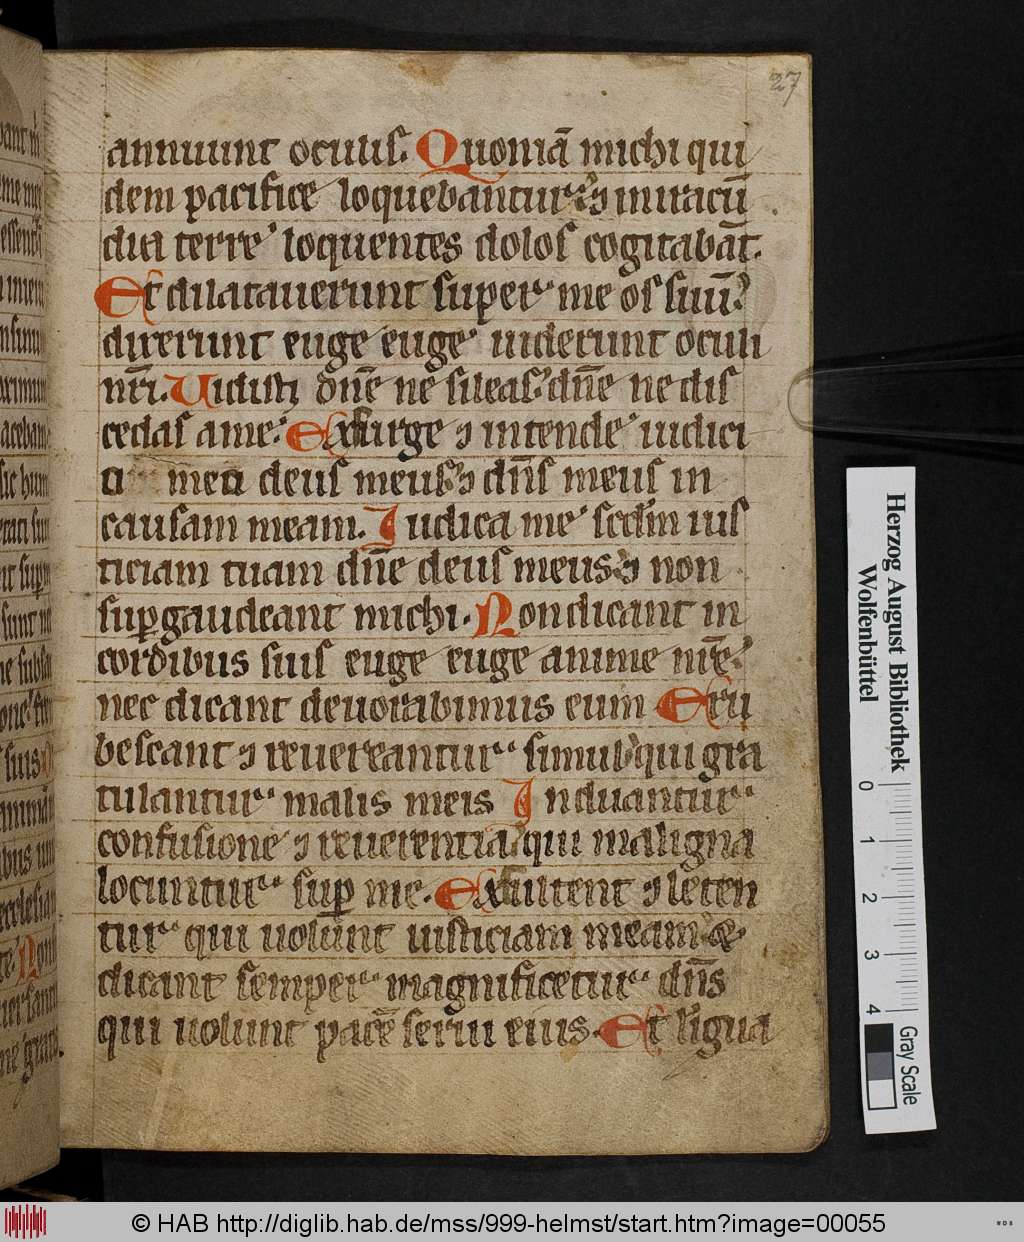 27
annuunt oculis. Quoniā michi qui
dem pacifice loquebantur ⁊ in iracū
dia terre loquentes dolos cogitabāt.
Et dilatauerunt super me os suū
dixerunt euge euge uiderunt oculi
nr̄i. Uidisti dn̄e ne sileas dn̄e ne dis
cedas a me. Exsurge ⁊ intende iudici
o meo deus meus ⁊ dn̄s meus in
causam meam. Iudica me scd̄m ius
ticiam tuam dn̄e deus meus ⁊ non
suꝑgaudeant michi. Non dicant in
cordibus suis euge euge anime nr̄e
nec dicant deuorabimus eum Eru
bescant ⁊ reuereantur simul qui gra
tulantur malis meis Induantur
confusione ⁊ reuerentia qui maligna
locuntur suꝑ me. Exsultent ⁊ leten
tur qui uolunt iusticiam meam &
dicant semper magnificetur dn̄s
qui uolunt pacē serui eius. Et ligua
Herzog August Bibliothek
Wolfenbüttel
0 1 2 3 4
Gray Scale
© HAB http://diglib.hab.de/mss/999-helmst/start.htm?image=00055